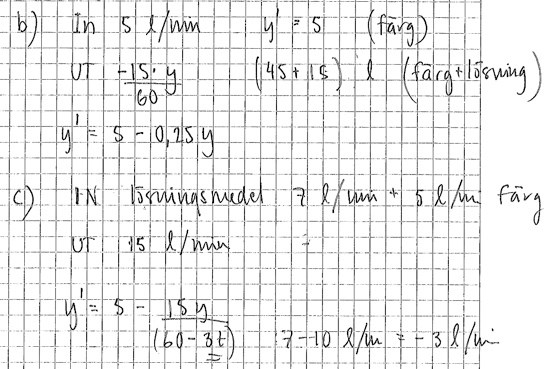 b) In 5 l/min y' = 5 (färg)
UT -15·y/60 (45+15) l (färg+lösning)
y' = 5 - 0,25y
c) IN lösningsmedel 7 l/min + 5 l/m färg
UT 15 l/min
y' = 5 - 15y/(60-3t) 7-10 l/m = -3 l/min